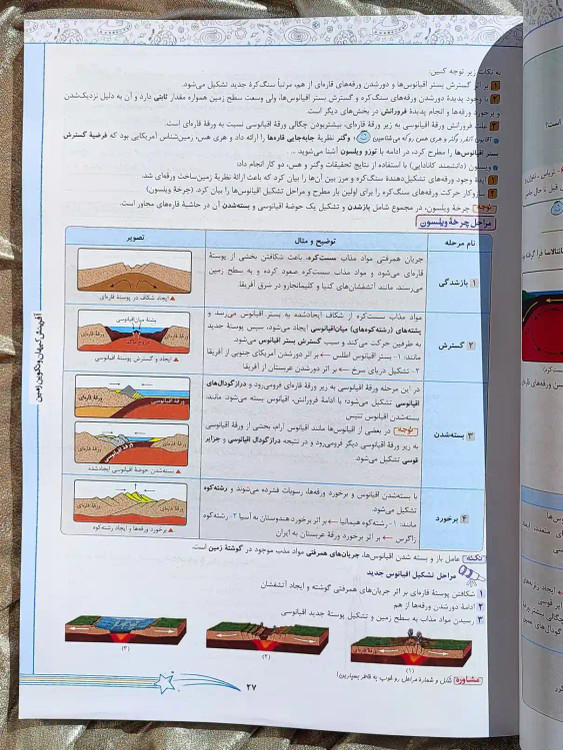 به نکات زیر توجه کنین:
۱ بر اثر گسترش بستر اقیانوس‌ها و دورشدن ورقه‌های قاره‌ای از هم، مرتباً سنگ‌کرهٔ جدید تشکیل می‌شود.
۲ با وجود پدیدهٔ دورشدن ورقه‌های سنگ‌کره و گسترش بستر اقیانوس‌ها، ولی وسعت سطح زمین همواره مقدار ثابتی دارد و آن به دلیل نزدیک‌شدن
و برخورد ورقه‌ها و انجام پدیدهٔ فرورانش در بخش‌های دیگر است.
۳ علت فرورانش ورقهٔ اقیانوسی به زیر ورقهٔ قاره‌ای، بیشتربودن چگالی ورقهٔ اقیانوسی نسبت به ورقهٔ قاره‌ای است.
وگنر نظریهٔ جابه‌جایی قاره‌ها را ارائه داد و هری هس، زمین‌شناس آمریکایی بود که فرضیهٔ گسترش
بستر اقیانوس‌ها را مطرح کرد، در ادامه با توزو ویلسون آشنا می‌شوید ..
ویلسون (دانشمند کانادایی) با استفاده از نتایج تحقیقات وگنر و هس، دو کار انجام داد:
۱ ایدهٔ وجود ورقه‌های تشکیل‌دهندهٔ سنگ‌کره و مرز بین آن‌ها را بیان کرد که باعث ارائهٔ نظریهٔ زمین‌ساخت ورقه‌ای شد.
۲ سازوکار حرکت ورقه‌های سنگ‌کره را برای اولین بار مطرح و مراحل تشکیل اقیانوس‌ها را بیان کرد. (چرخهٔ ویلسون)
توجه چرخهٔ ویلسون، در مجموع شامل بازشدن و تشکیل یک حوضهٔ اقیانوسی و بسته‌شدن آن در حاشیهٔ قاره‌های مجاور است.
مراحل چرخهٔ ویلسون
نام مرحله توضیح و مثال تصویر
۱ بازشدگی
جریان همرفتی مواد مذاب سست‌کره، باعث شکافتن بخشی از پوستهٔ
قاره‌ای می‌شود و مواد مذاب سست‌کره صعود کرده و به سطح زمین
می‌رسند. مانند: آتشفشان‌های کنیا و کلیمانجارو در شرق آفریقا
ایجاد شکاف در پوستهٔ قاره‌ای
۲ گسترش
مواد مذاب سست‌کره از شکاف ایجادشده به بستر اقیانوس می‌رسد و
پشته‌های (رشته‌کوه‌های) میان‌اقیانوسی ایجاد می‌شود، سپس پوستهٔ جدید
به طرفین حرکت می‌کند و سبب گسترش بستر اقیانوس می‌شود.
مانند: ۱- اقیانوس اطلس ← بر اثر دورشدن آمریکای جنوبی از آفریقا
۲- تشکیل دریای سرخ ← بر اثر دورشدن عربستان از آفریقا
پشتهٔ میان‌اقیانوسی
ورقهٔ قاره‌ای
ورقهٔ قاره‌ای
ایجاد و گسترش پوستهٔ اقیانوسی
۳ بسته‌شدن
در این مرحله ورقهٔ اقیانوسی به زیر ورقهٔ قاره‌ای فرومی‌رود و درازگودال‌های
اقیانوسی تشکیل می‌شود؛ با ادامهٔ فرورانش، اقیانوس بسته می‌شود. مانند:
بسته‌شدن اقیانوس تتیس
توجه در بعضی از اقیانوس‌ها مانند اقیانوس آرام، بخشی از ورقهٔ اقیانوسی
به زیر ورقهٔ اقیانوسی دیگر فرومی‌رود و در نتیجه درازگودال اقیانوسی و جزایر
قوسی تشکیل می‌شود.
ورقهٔ قاره‌ای
ورقهٔ اقیانوسی
ورقهٔ قاره‌ای
ورقهٔ قاره‌ای
ورقهٔ اقیانوسی
بسته‌شدن حوضهٔ اقیانوسی ایجادشده
۴ برخورد
با بسته‌شدن اقیانوس و برخورد ورقه‌ها، رسوبات فشرده می‌شوند و رشته‌کوه
تشکیل می‌شود.
مانند: ۱- رشته‌کوه هیمالیا ← بر اثر برخورد هندوستان به آسیا ۲- رشته‌کوه
زاگرس ← بر اثر برخورد ورقهٔ عربستان به ایران
برخورد ورقه‌ها و ایجاد رشته‌کوه
نکته عامل باز و بسته شدن اقیانوس‌ها، جریان‌های همرفتی مواد مذاب موجود در گوشتهٔ زمین است.
مراحل تشکیل اقیانوس جدید
۱ شکافتن پوستهٔ قاره‌ای بر اثر جریان‌های همرفتی گوشته و ایجاد آتشفشان
۲ ادامهٔ دورشدن ورقه‌ها از هم
۳ رسیدن مواد مذاب به سطح زمین و تشکیل پوستهٔ جدید اقیانوسی
ورقهٔ قاره‌ای
(۱)
(۲)
(۳)
مشاوره شکل و شمارهٔ مراحل رو خوب به خاطر بسپارین!
۲۷
آفرینش کیهان و تکوین زمین